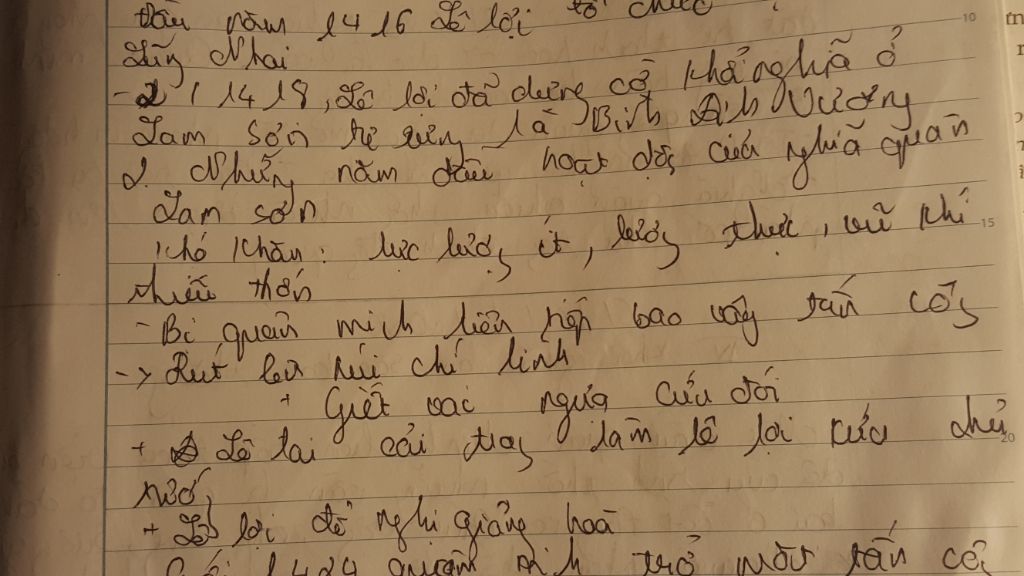 đầu năm 1416 Lê lợi tổ chức
Lũng Nhai
- 2 / 1418, Lê lợi đã dựng cờ khởi nghĩa ở
Lam sơn tự xưng là Bình Định Vương
2. Những năm đầu hoạt động của nghĩa quân
Lam sơn
khó khăn: lực lượng ít, lương thực, vũ khí
thiếu thốn
- Bị quân minh liên tiếp bao vây tấn công
-> Rút lên núi chí linh
+ Giết voi ngựa cứu đói
+ Lê lai cải trang làm lê lợi cứu chủ
tướng
+ Lê lợi đề nghị giảng hoà
1424 quân minh trở mặt tấn cô